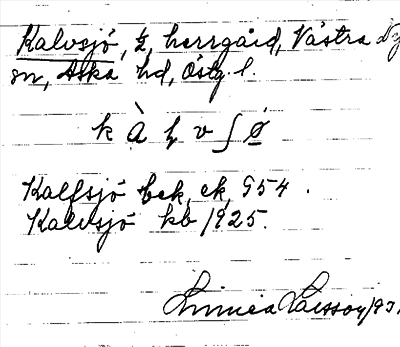 Kalvsjö, ½, herrgård, Västra Ny
sn, Aska hd, Östg. l.
k à l v ʃ ö
Kalfsjö bek, ek, 954.
Kalvsjö kb 1925.
Linnéa Larsson / 93.